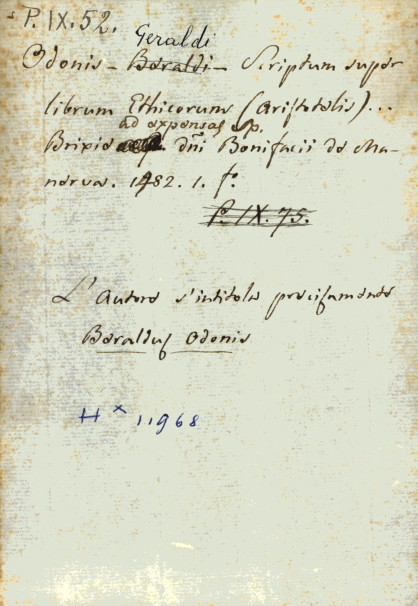 P. IX. 52.
Geraldi
Odonis - Beraldi - Scriptum super
librum Ethicorum (Aristotelis)...
ad expensas sp.
Brixie dñi Bonifacii de Ma-
nerva. 1482. 1. fº.
P. IX. 75.
L'autore s'intitola precisamente
Beraldus Odonis
H × 11968